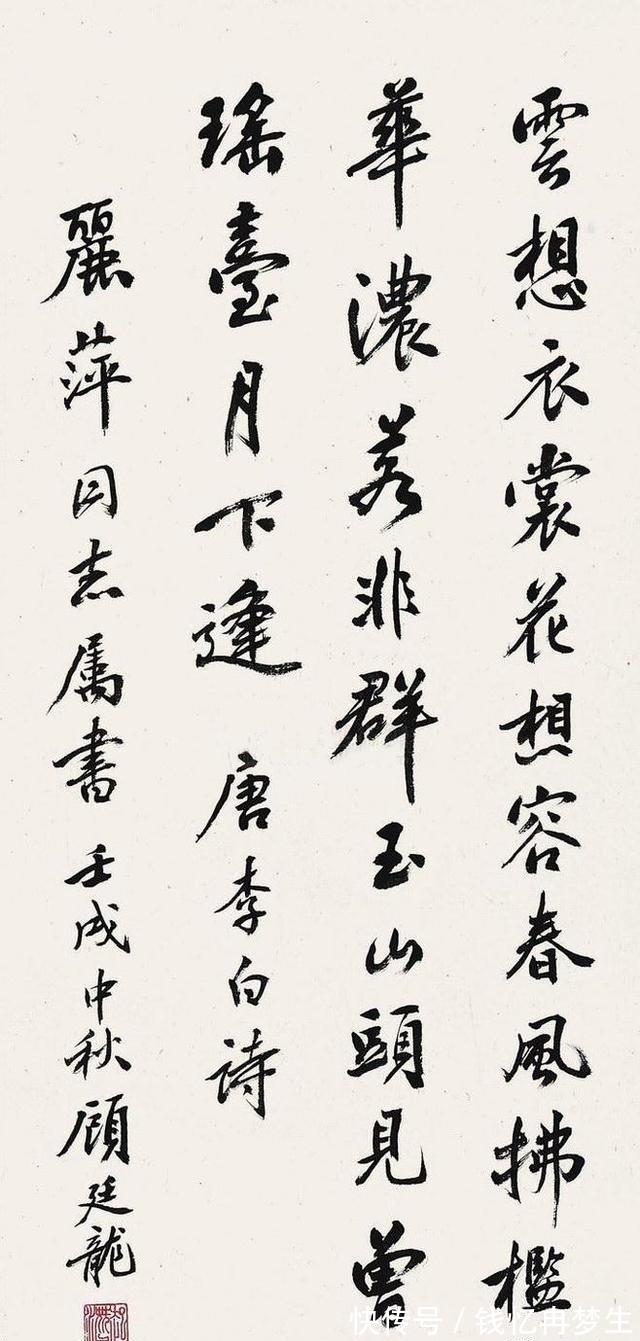 雲想衣裳花想容春風拂檻
華濃若非群玉山頭見曾
瑤臺月下逢 唐李白詩
麗萍同志属書 壬戌中秋顧廷龍
快传号 / 钱忆冉梦生